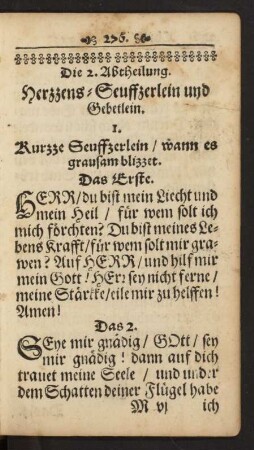 276.
Die 2. Abtheilung.
Herzzens-Seuffzerlein und
Gebetlein.
1.
Kurzze Seuffzerlein / wann es
grausam blizzet.
Das Erste.
HERR/du bist mein Liecht und
mein Heil / für wem solt ich
mich förchten? Du bist meines Le-
bens Krafft/für wem solt mir gra-
wen? Auf HERR/und hilf mir
mein Gott! HErr sey nicht ferne/
meine Stärcke/eile mir zu helffen!
Amen!
Das 2.
SEye mir gnädig/ GOtt/ sey
mir gnädig! dann auf dich
trauet meine Seele / und under
dem Schatten deiner Flügel habe
M vj ich